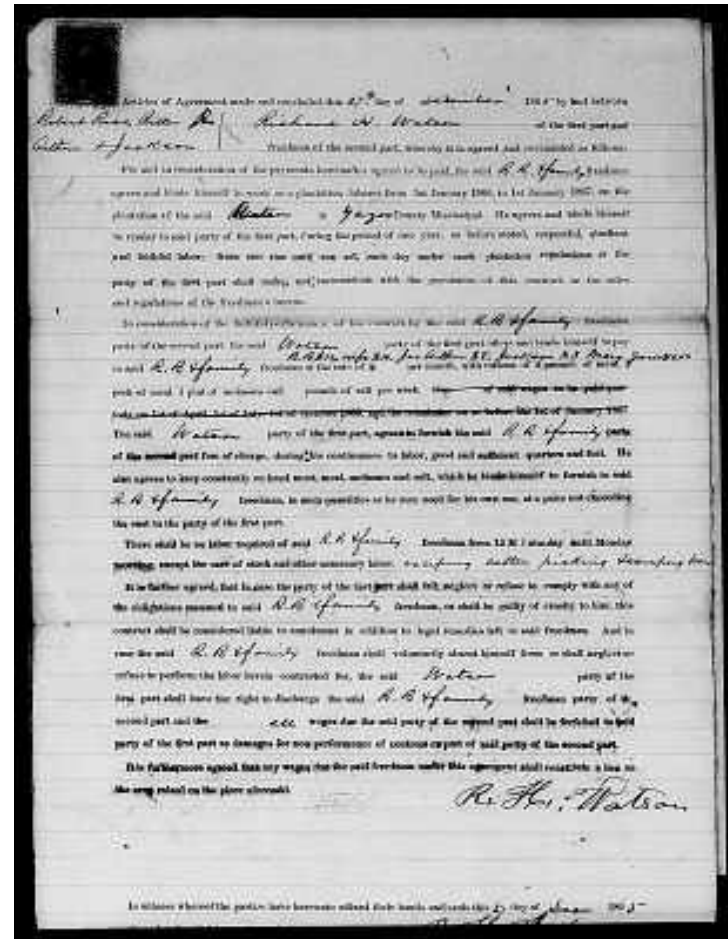 Articles of Agreement made and concluded this 27th day of December 1865 by and between
Robert Richard H. Watson of the first part and
& Jackson freedmen of the second part, whereby it is agreed and
For and in consideration of the payments hereinafter agreed to be paid, the said R. R. & family freedmen
agrees and binds himself to work as a plantation laborer from 1st January 1866, to 1st January 1867, on the
plantation of the said Watson in Yazoo County Mississippi. He agrees and binds himself
to render to said party of the first part, during the period of one year, as before stated, respectful, obedient
and faithful labor; from sun rise until sun set, each day under such plantation regulations as the
party of the first part shall make, not inconsistent with the provisions of this contract or the rules
and regulations of the Freedmen's bureau.
In consideration of the faithful performance of the contract by the said R. R. & family freedmen
party of the second part the said Watson party of the first part agrees and binds himself to pay
to said R. R. & family freedmen at the rate of per month, with rations of 4 pounds of meat, 1
peck of meal, 1 pint of molasses and pounds of salt per week.
The said Watson party of the first part, agrees to furnish the said R. R. & family party
of the second part free of charge, during his continuance to labor, good and sufficient quarters and fuel. He
also agrees to keep constantly on hand meat, meal, molasses and salt, which he binds himself to furnish to said
R. R. & family freedman, in such quantities as he may need for his own use, at a price not exceeding
the cost to the party of the first part.
There shall be no labor required of said R. R. & family freedman from 12 M Saturday until Monday
morning, except the care of stock and other necessary labor,
It is further agreed, that in case the party of the first part shall fail, neglect or refuse to comply with any of
the obligations assumed to said R. R. & family freedman, or shall be guilty of cruelty to him, this
contract shall be considered liable to annulment in addition to legal remedies left to said freedman. And in
case the said R. R. & family freedman shall voluntarily absent himself from or shall neglect or
refuse to perform the labor herein contracted for, the said Watson party of the
first part shall have the right to discharge the said R. R. & family freedman party of the
second part and the all wages due the said party of the second part shall be forfeited to said
party of the first part as damages for non performance of contract on part of said party of the second part.
It is furthermore agreed that any wages due the said freedman under this agreement shall constitute a lien on
the crop raised on the place aforesaid.
R. H. Watson
In witness whereof the parties have hereunto affixed their hands and seals this day of 1865